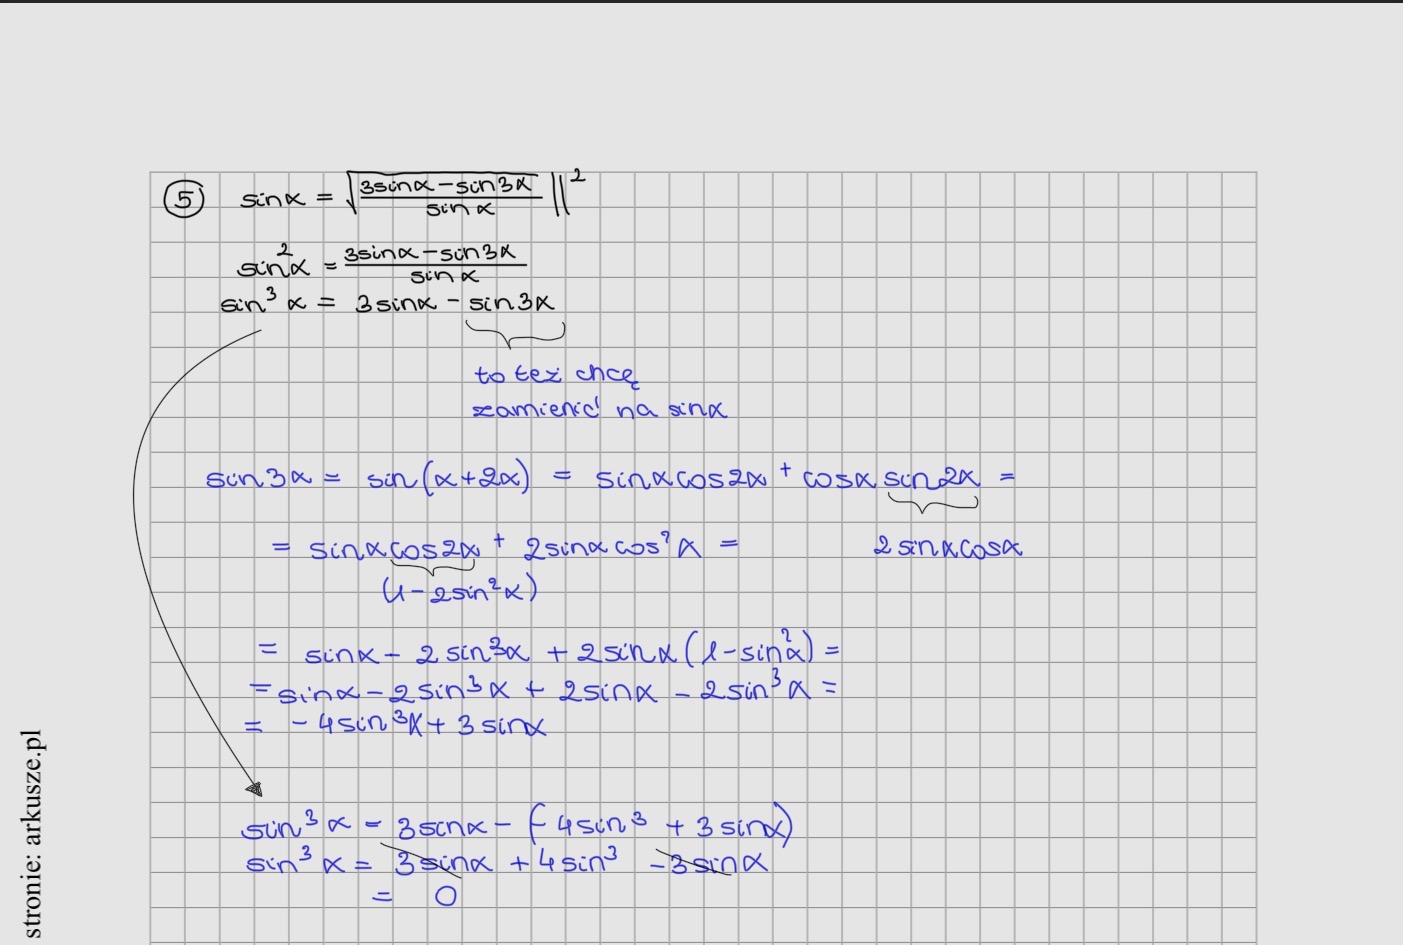 5 sinα = √(3sinα - sin3α / sinα) ||²
sin²α = 3sinα - sin3α / sinα
sin³α = 3sinα - sin3α
to też chcę
zamienić na sinα
sin3α = sin(α+2α) = sinαcos2α + cosα sin2α =
= sinαcos2α + 2sinαcos²α = 2sinαcosα
(1-2sin²α)
= sinα - 2sin³α + 2sinα(1-sin²α) =
= sinα - 2sin³α + 2sinα - 2sin³α =
= -4sin³α + 3sinα
sin³α = 3sinα - (-4sin³ + 3sinα)
sin³α = 3sinα + 4sin³ - 3sinα
= 0
stronie: arkusze.pl